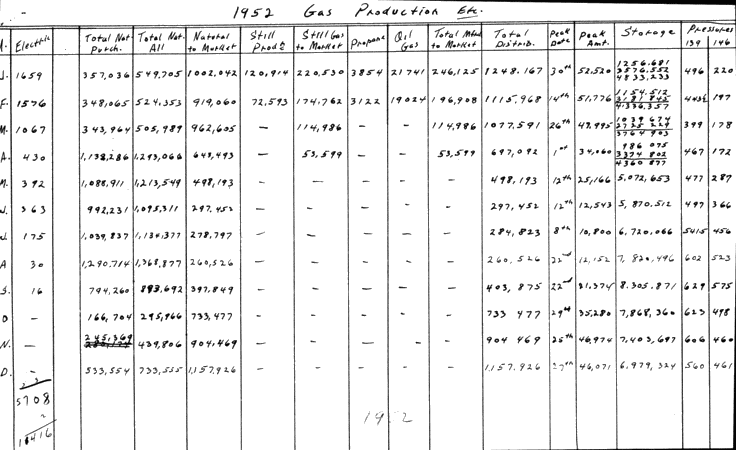 1952 Gas Production Etc.
M. Electric Total Nat. Purch. Total Nat. All Natural to Market Still Prod'd Still Gas to Market Propane Oil Gas Total Mfnd to Market Total Distrib. Peak Date Peak Amt. Storage Pressures 139 146
J. 1659 357,036 549,705 1002,042 120,914 220,530 3854 21741 246,125 1248.167 30th 52,520 1256,681 3576,552 4833,233 496 220
F. 1576 348,065 524,353 919,060 72,593 174,762 3122 19024 196,908 1115.968 14th 51,776 1154.512 3181 845 4336,357 197
M. 1067 343,964 505,989 962,605 — 114,986 — — 114,986 1077.591 26th 1039 674 2725 229 3764 903 399 178
A. 430 1,138,286 1,293,066 — 53,599 — — 53,599 697,092 1st 34,060 986 075 3374 802 4360 877 467 172
M. 392 1,088,911 1,213,549 498,193 — — — — — 498,193 12th 25,166 5,072,653 477 287
J. 363 992,231 1,095,311 297,452 — — — — — 297,452 12th 12,543 5,870.512 497 366
J. 175 1,039,837 1,134,377 278,797 — — — — — 284,823 8th 10,800 6,720,066 5415 456
A 30 1,290,714 1,368,877 260,526 — — — — — 260,526 22nd 12,152 7,820,496 602 523
S. 16 794,260 883,692 397,849 — — — — — 403,875 22nd 31,374 8.305.871 629 575
O — 166,704 295,966 733,477 — — — — — 733 477 29th 35,280 7,868,360 623 498
N. — 245,369 439,806 904,469 — — — — — 904 469 25th 46,974 7,403,697 606 460
D. — 533,554 733,555 1,157,926 — — — — — 1,157.926 27th 46,071 6,979,324 560 461
5708
2
11416
1952